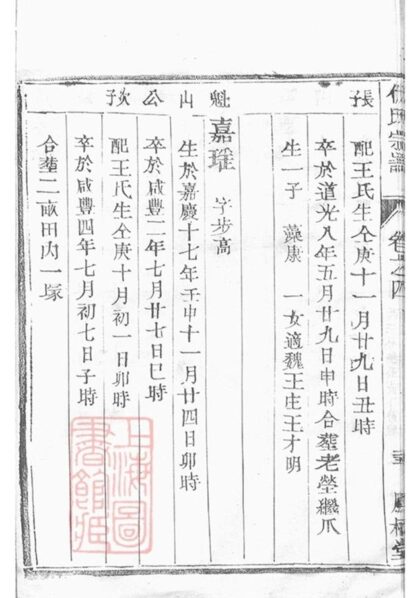 氏宗譜
卷之四
張
魁山公次子
配王氏生仝庚十一月廿九日丑時
卒於道光八年五月廿九日申時合塟老塋繼爪
生一子 藻康 一女適魏王庄王才明
嘉瑤 字步高
生於嘉慶十七年壬申十一月廿四日卯時
卒於咸豐二年七月廿七日巳時
配王氏生仝庚十月初一日卯時
卒於咸豐四年七月初七日子時
合塟二畝田內一塚
上海圖
書館藏